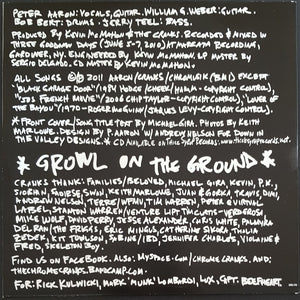 PETER AARON: VOCALS, GUITAR. WILLIAM G. WEBER: GUITAR.
BOB BERT: DRUMS. JERRY TEEL: BASS.
PRODUCED BY KEVIN McMAHON & THE CRANKS. RECORDED & MIXED IN
THREE GODDAMN DAYS (JUNE 5-7, 2010) AT MARCATA RECORDING,
GARDINER, NY. ENGINEERED BY KEVIN McMAHON. LP MASTER BY
SERGIO DELGADO. CD MASTER BY KEVIN McMAHON.
ALL SONGS © 2011 AARON/CRANKS/CHROMILIK (BMI) EXCEPT
"BLACK GARAGE DOOR" (1984 HODGE/CHEEK/HAHM - COPYRIGHT CONTROL),
FRENCH MOVIE" (2006 CHIP TAYLOR - COPYRIGHT CONTROL), "LOVER OF
THE BAYOU" (1970 - ROGER McGUINN/JACQUES LEVY - COPYRIGHT CONTROL).
* FRONT COVER/SONG TITLE TEXT BY MICHAEL GIRA. PHOTOS BY KEITH
MARLOWE. DESIGN BY P. AARON W/ ANDREW NELSON FOR DOWN IN
THE VALLEY DESIGNS. * CD AVAILABLE ON
* GROWL ON THE GROUND *
CRANKS THANK: FAMILIES/BELOVED, MICHAEL GIRA, KEVIN,
SIOBHAN, KEITH MARLOWE, JUAN & GORKA, TRAVIS, DIMI,
ANDREW NELSON, TERRE/WFMU, TIM WARREN, PETER & VIRTUAL
LABEL, STANTON WARREN/VENTURE LIFT TMC
MIKE WOLF, JESSE ALEXANDER, CHRIS WHITE, PALOMBA
DELRAN/THE FRIGGS, ERIC MINGUS, CATHERINE SIKORA, THALIA
ZEDEK, KT TOWSON, SABINE/IBD, JENNIFER CHARLES, VIOLAINE &
FRED, SKELETON BOY.
FIND US ON FACEBOOK. ALSO: MYSPACE.COM/CHROMECRANKS, AND
THECHROMECRANKS.BANDCAMP.COM.
FOR: RICK KULWICKI, MARK "MUNK" LOMBARDI, LUX, CPT. BEEFHEART